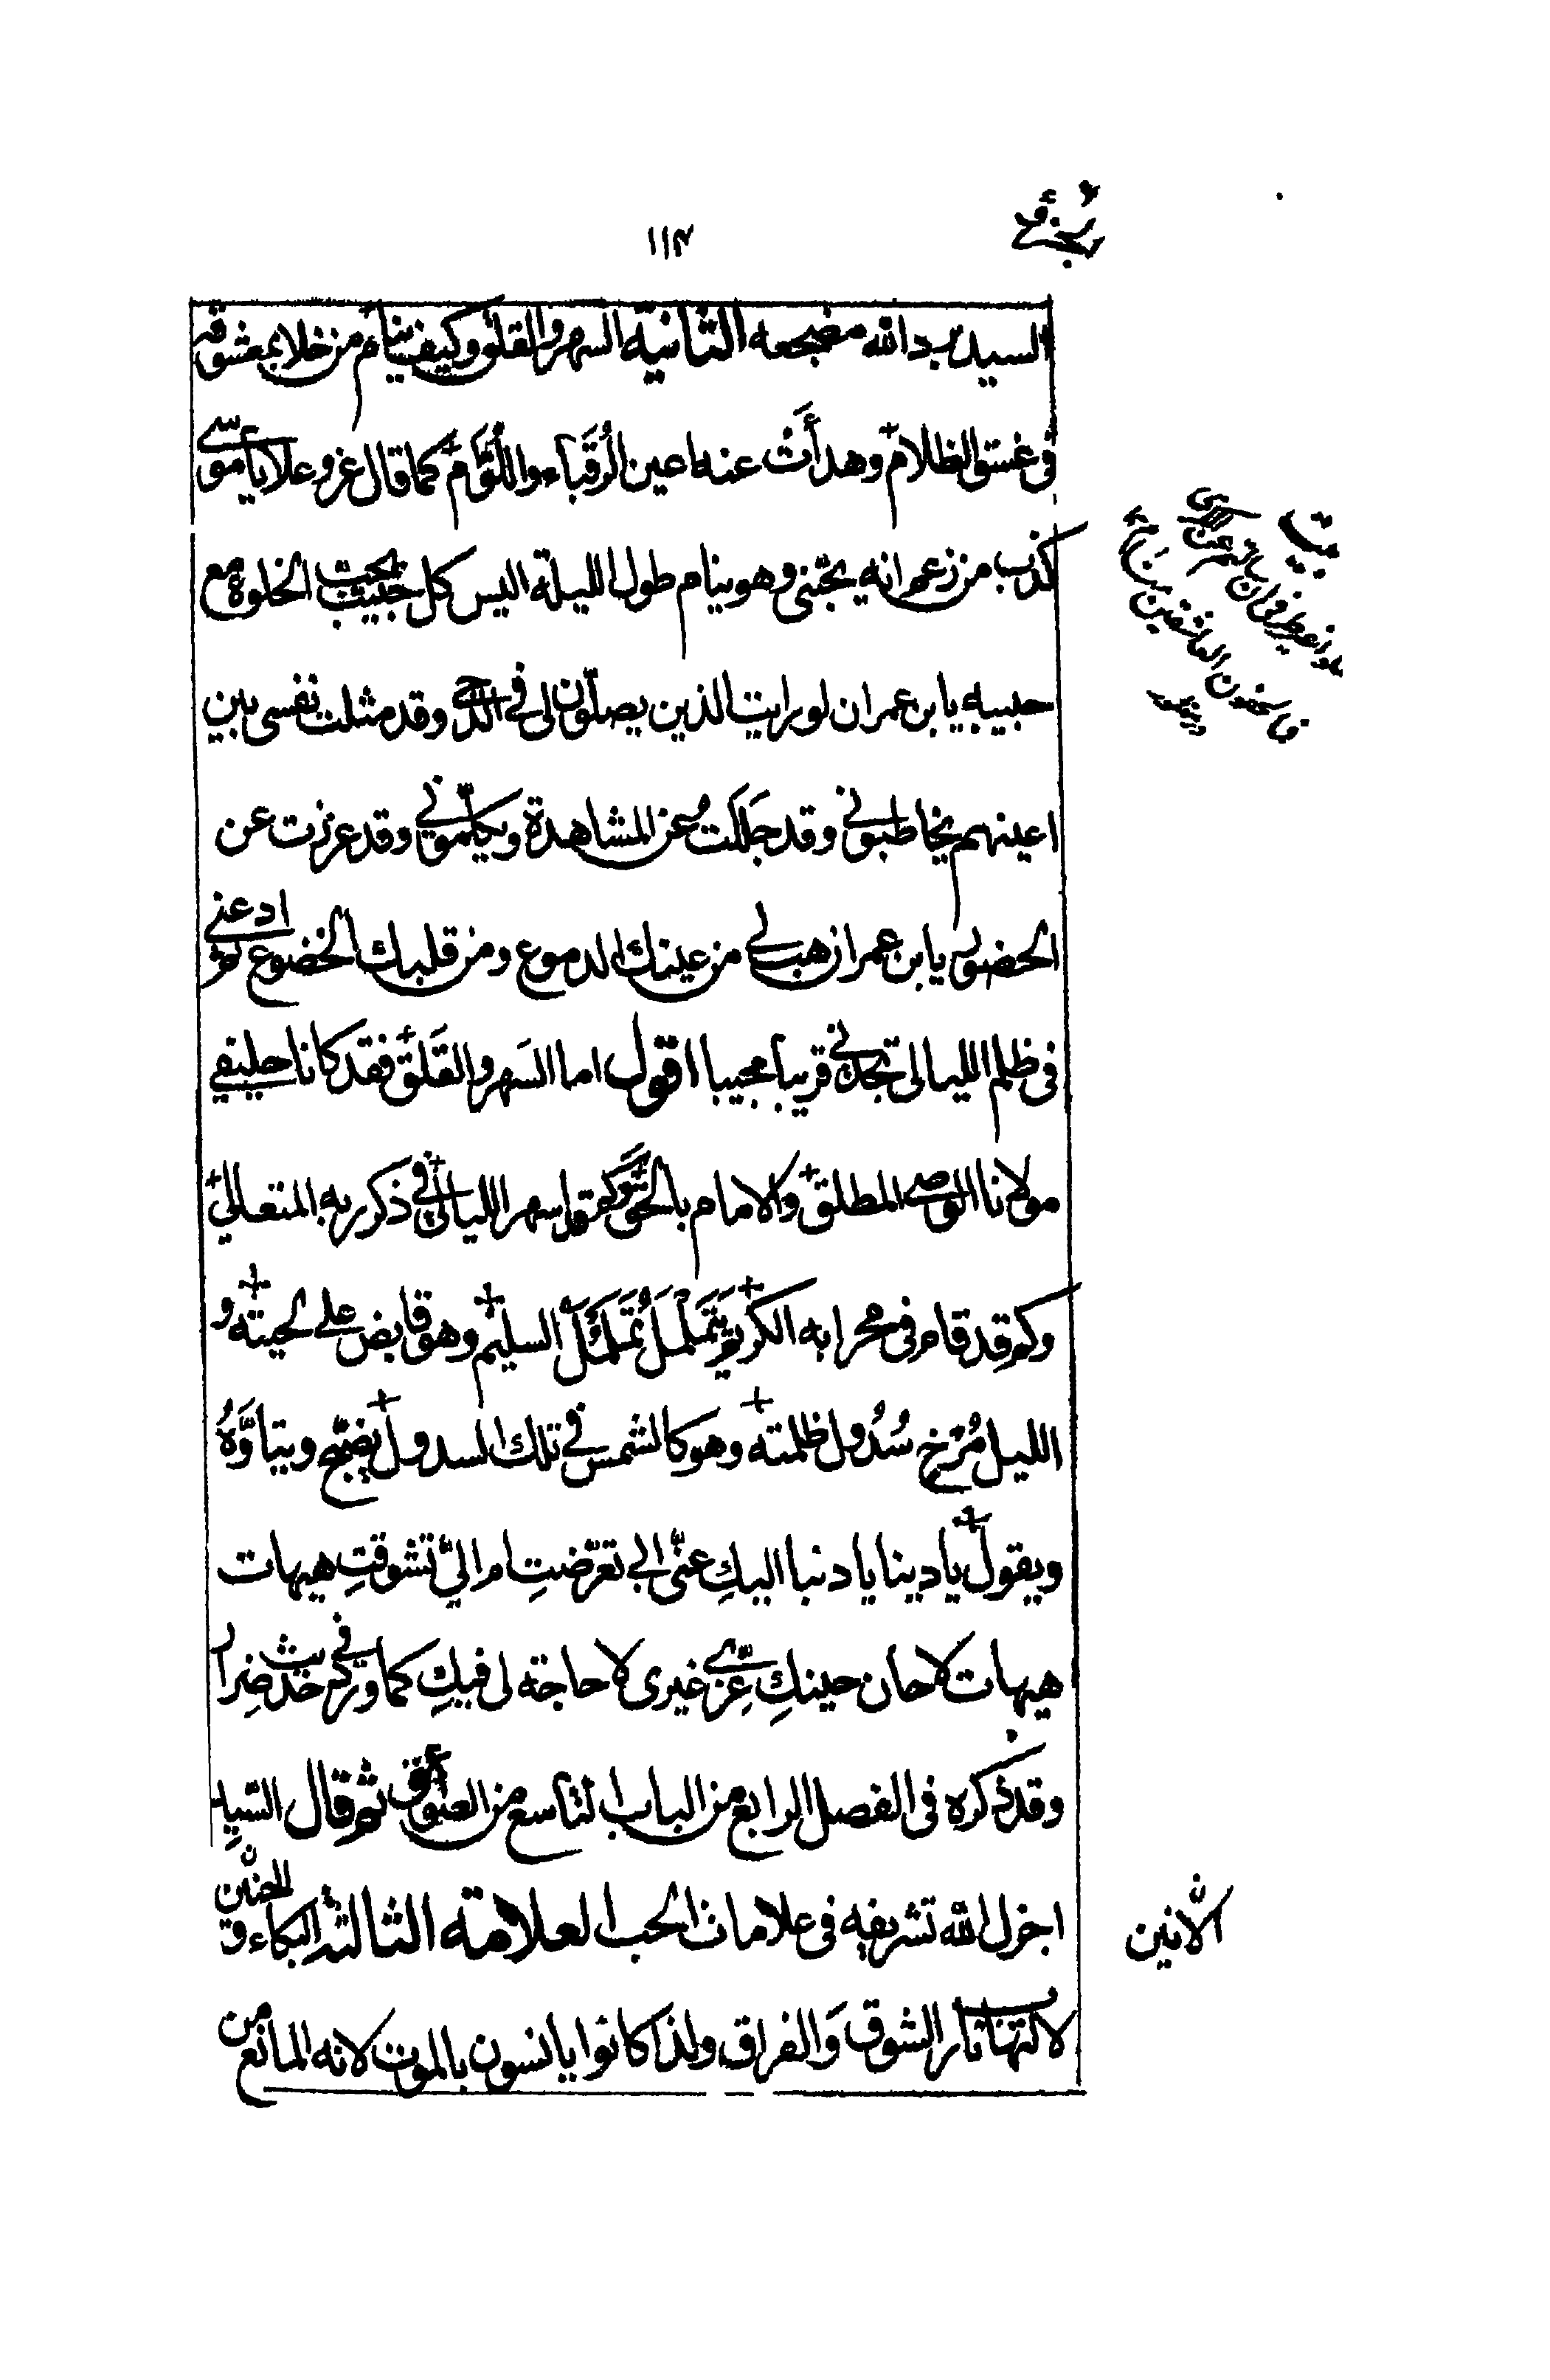 ١١٣
السيد برد الله مضجعه الثانية السهر والقلق وكيف ينام من خلا بمعشوقه
في غسق الظلام وهدأت عنه اعين الرقباء واللوّام كما قال عز وعلا يا موسى
كذب من زعم انه يحبّني وهو ينام طول الليلة اليس كل حبيب يحب الخلوة مع
حبيبه يا بن عمران لو رايت الذين يصلّون لي في الدجى وقد مثلت نفسي بين
اعينهم يخاطبوني وقد جَلَلتُ عن المشاهدة ويكلّموني وقد عززت عن
الحضور يا بن عمران هب لي من عينك الدموع ومن قلبك الخضوع ثم ادعني
في ظلم الليالي تجدني قريبا مجيبا اقول اما السَهر والقَلَق فقد كانا حليفي
مولانا الوصي المطلق والامام بالحق وكم سهر الليالي في ذكر ربه المتعالي
وكم قد قام في محرابه الكريم يَتَمَلْمَلُ تَمَلْمُلَ السليم وهو قابض على لحيته و
الليل مُرْخٍ سُدُول ظلمته وهو كالشمس في تلك السدول يضجّ ويتأوَّهُ
ويقول يا دينا يا دنيا اليكِ عنّي ابي تعرّضتِ ام اليّ تشوقتِ هيهات
هيهات لا حان حينكِ غِرّي غيري لا حاجة لي فيكِ كما ورد في حديث ضِرار
وقد ذكره في الفصل الرابع من الباب التاسع من العنوان ثم قال السَيِّد
اجزل الله تشريفه في علامات الحب العلامة الثالثة البكاء والحنين
الانين
لالتهاب نار الشوق وَالفراق ولذا كانوا يانسون بالموت لانه المانع من